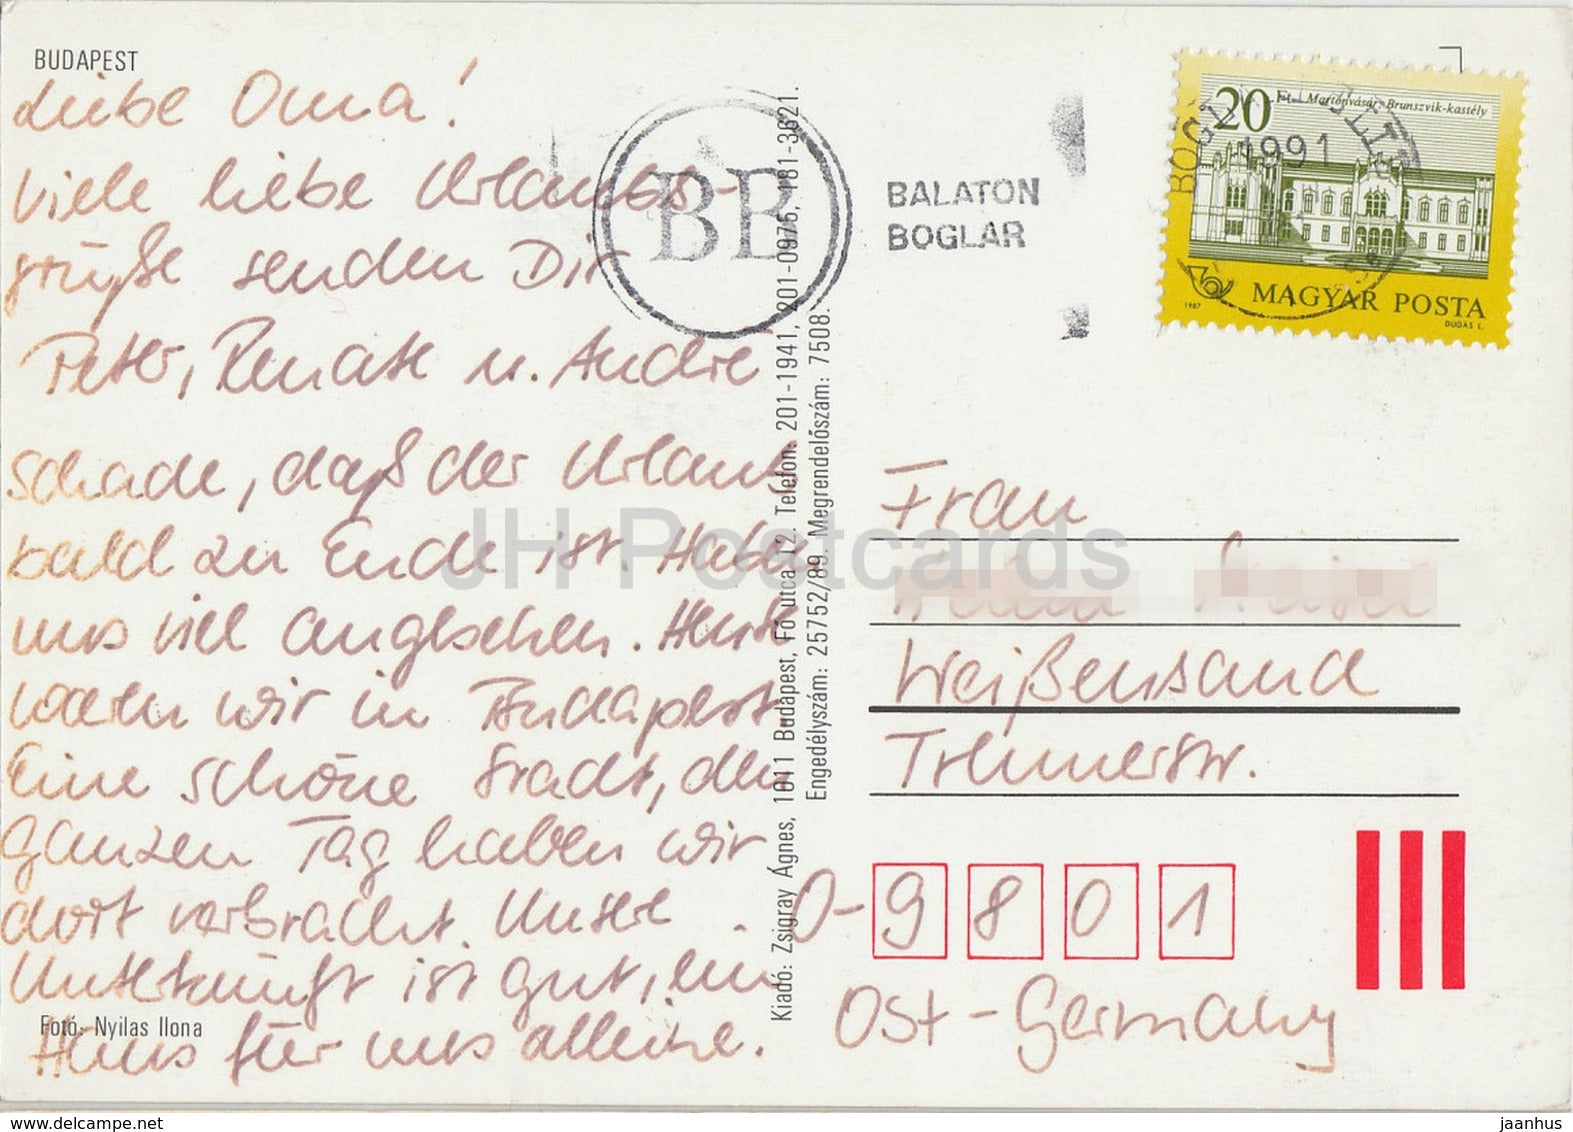 BUDAPEST
Liebe Oma!
Viele liebe Urlaubs-
grüße senden Dir
Peter, Renate u. Andre
Schade, daß der Urlaub
bald zu Ende ist. Haben
uns viel angesehen. Heute
waren wir in Budapest.
Eine schöne Stadt, den
ganzen Tag haben wir
dort verbracht. Unsere
Unterkunft ist gut, ein
Haus für uns alleine.
Fotó: Nyilas Ilona
Kiadó: Zsigray Ágnes, 1011 Budapest, Fő utca 12. Telefon: 201-1941, 201-0975, 181-3621.
Engedélyszám: 25752/89. Megrendelőszám: 7508.
BB
BALATON
BOGLAR
1991
20 Ft Martonvásár Brunszvik-kastély
MAGYAR POSTA
1987 DUDÁS L.
Frau
Weißensand
Treuenerstr.
O-9801
Ost-Germany
JH Postcards
www.delcampe.net
jaanhus